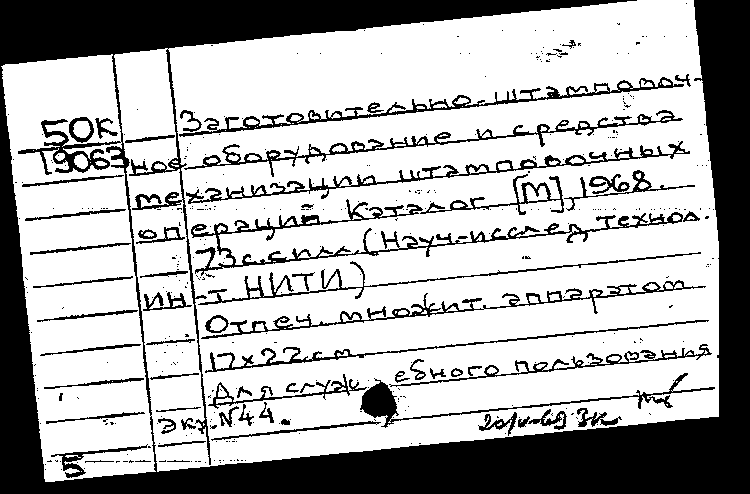 50К
19063
Заготовительно-штамповоч-
ное оборудование и средства
механизации штамповочных
операций. Каталог. [М], 1968.
73с.силл.(Науч.-исслед. технол.
ин-т НИТИ)
Отпеч. множит. аппаратом
17х22см.
Для служебного пользования.
экз.N44.
5